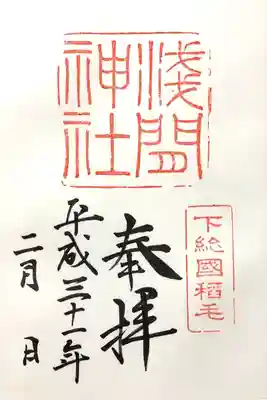 浅間
神社
奉拝
下総國稻毛
平成三十一年
二月 日